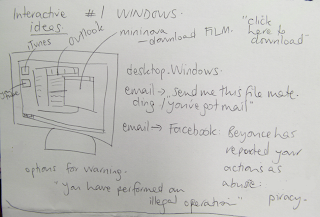 Interactive #1 WINDOWS.
ideas
iTunes
Outlook
mininova
download FILM.
"click
here
to
download"
desktop. Windows.
email → "send me this file mate.
ding / you've got mail"
email → Facebook: Beyonce has
reported your
actions as
abuse.
options for warning.
"you have performed an
illegal operation"
piracy.